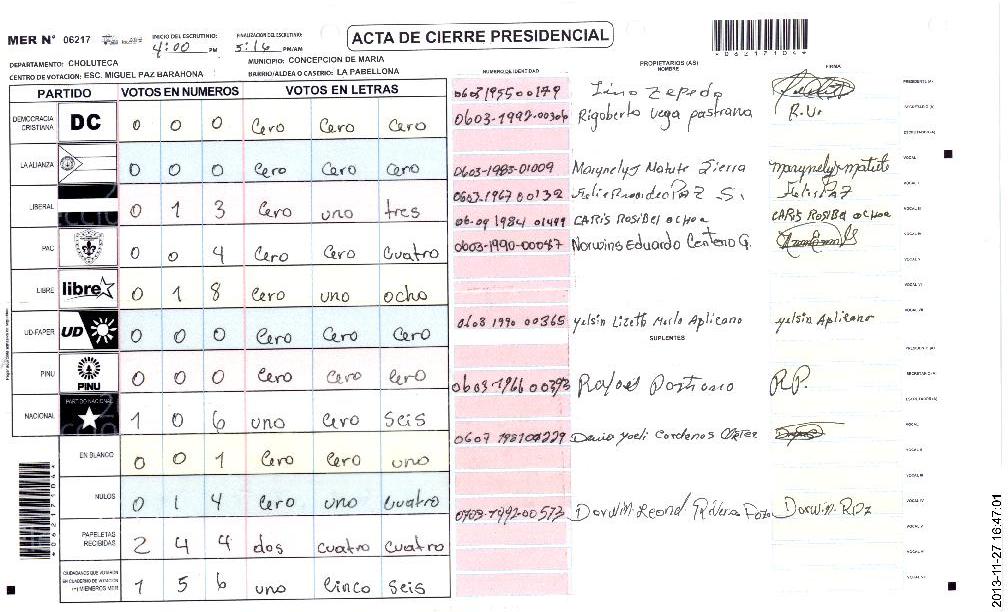 MER N° 06217
INICIO DEL ESCRUTINIO: 4:00 PM
FINALIZACION DEL ESCRUTINIO: 5:16 PM/AM
ACTA DE CIERRE PRESIDENCIAL
*06217104*
DEPARTAMENTO: CHOLUTECA
MUNICIPIO: CONCEPCION DE MARIA
CENTRO DE VOTACION: ESC. MIGUEL PAZ BARAHONA
BARRIO/ALDEA O CASERIO: LA PABELLONA
PARTIDO VOTOS EN NUMEROS VOTOS EN LETRAS
DEMOCRACIA CRISTIANA DC 0 0 0 Cero Cero Cero
LA ALIANZA 0 0 0 Cero Cero Cero
LIBERAL 0 1 3 Cero uno tres
PAC 0 0 4 Cero Cero Cuatro
LIBRE libre 0 1 8 Cero uno ocho
UD-FAPER UD 0 0 0 Cero Cero Cero
PINU PINU 0 0 0 Cero Cero Cero
NACIONAL PARTIDO NACIONAL 1 0 6 uno Cero seis
EN BLANCO 0 0 1 Cero Cero uno
NULOS 0 1 4 Cero uno Cuatro
PAPELETAS RECIBIDAS 2 4 4 dos cuatro cuatro
CIUDADANOS QUE VOTARON EN CUADERNO DE VOTACION (+) MIEMBROS MER 1 5 6 uno Cinco seis
NUMERO DE IDENTIDAD
PROPIETARIOS (AS)
NOMBRE
FIRMA
0603195500179 Zepeda PRESIDENTE (A)
0603-1992-00306 Rigoberto Vega pastrana R.V. SECRETARIO (A)
ESCRUTADOR (A)
0603-1985-01009 Marynelys Matute Sierra marynelys matute VOCAL I
0603-1967 00132 Felix PAZ S. Felix PAZ
1984 01499 CARIS ROSIBEL OCHOA CARIS ROSIBEL OCHOA
0603-1990-00087 Norwins Eduardo Centeno G.
0608 1990 00365 yelsin Lizeth Merlo Aplicano yelsin Aplicano
SUPLENTES
PRESIDENTE (A)
0603-1966 00393 Rafael R.P. SECRETARIO (A)
ESCRUTADOR (A)
0607 Cardenas
Dorwin Leonel Rivera
*06217104*
2013-11-27 16:47:01